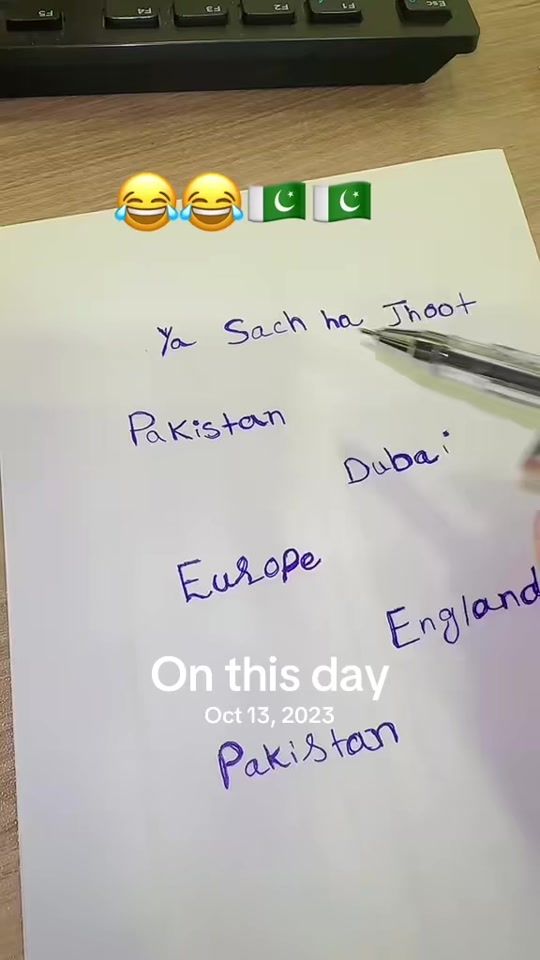 F5 F4 F3 F2 F1 Esc
😂😂🇵🇰🇵🇰
Ya Sach ha Jhoot
Pakistan
Dubai
Europe
England
On this day
Oct 13, 2023
Pakistan